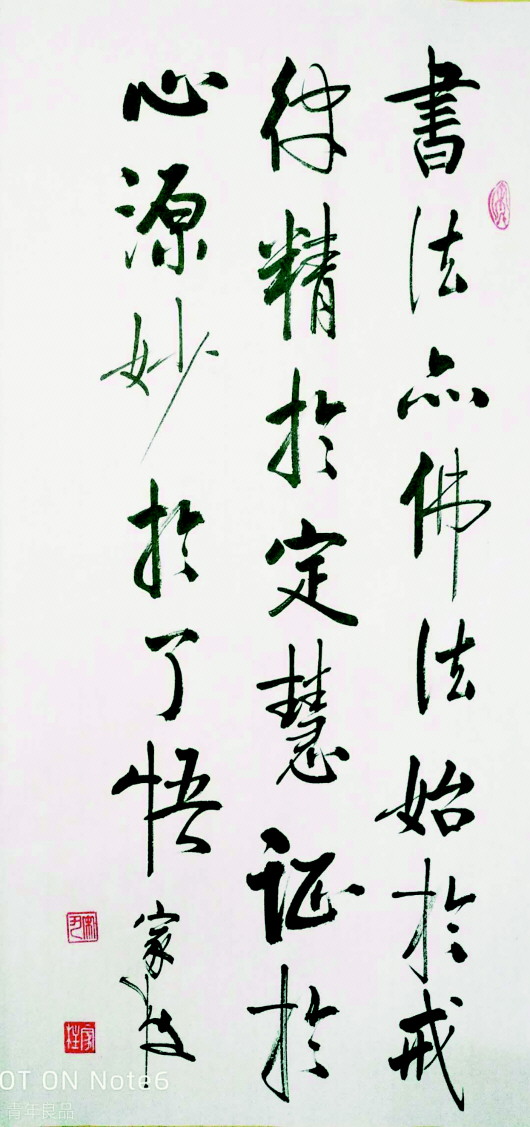 書法亦佛法始於戒
律精於定慧证於
心源妙於了悟
家
OT ON Note6
青年良品